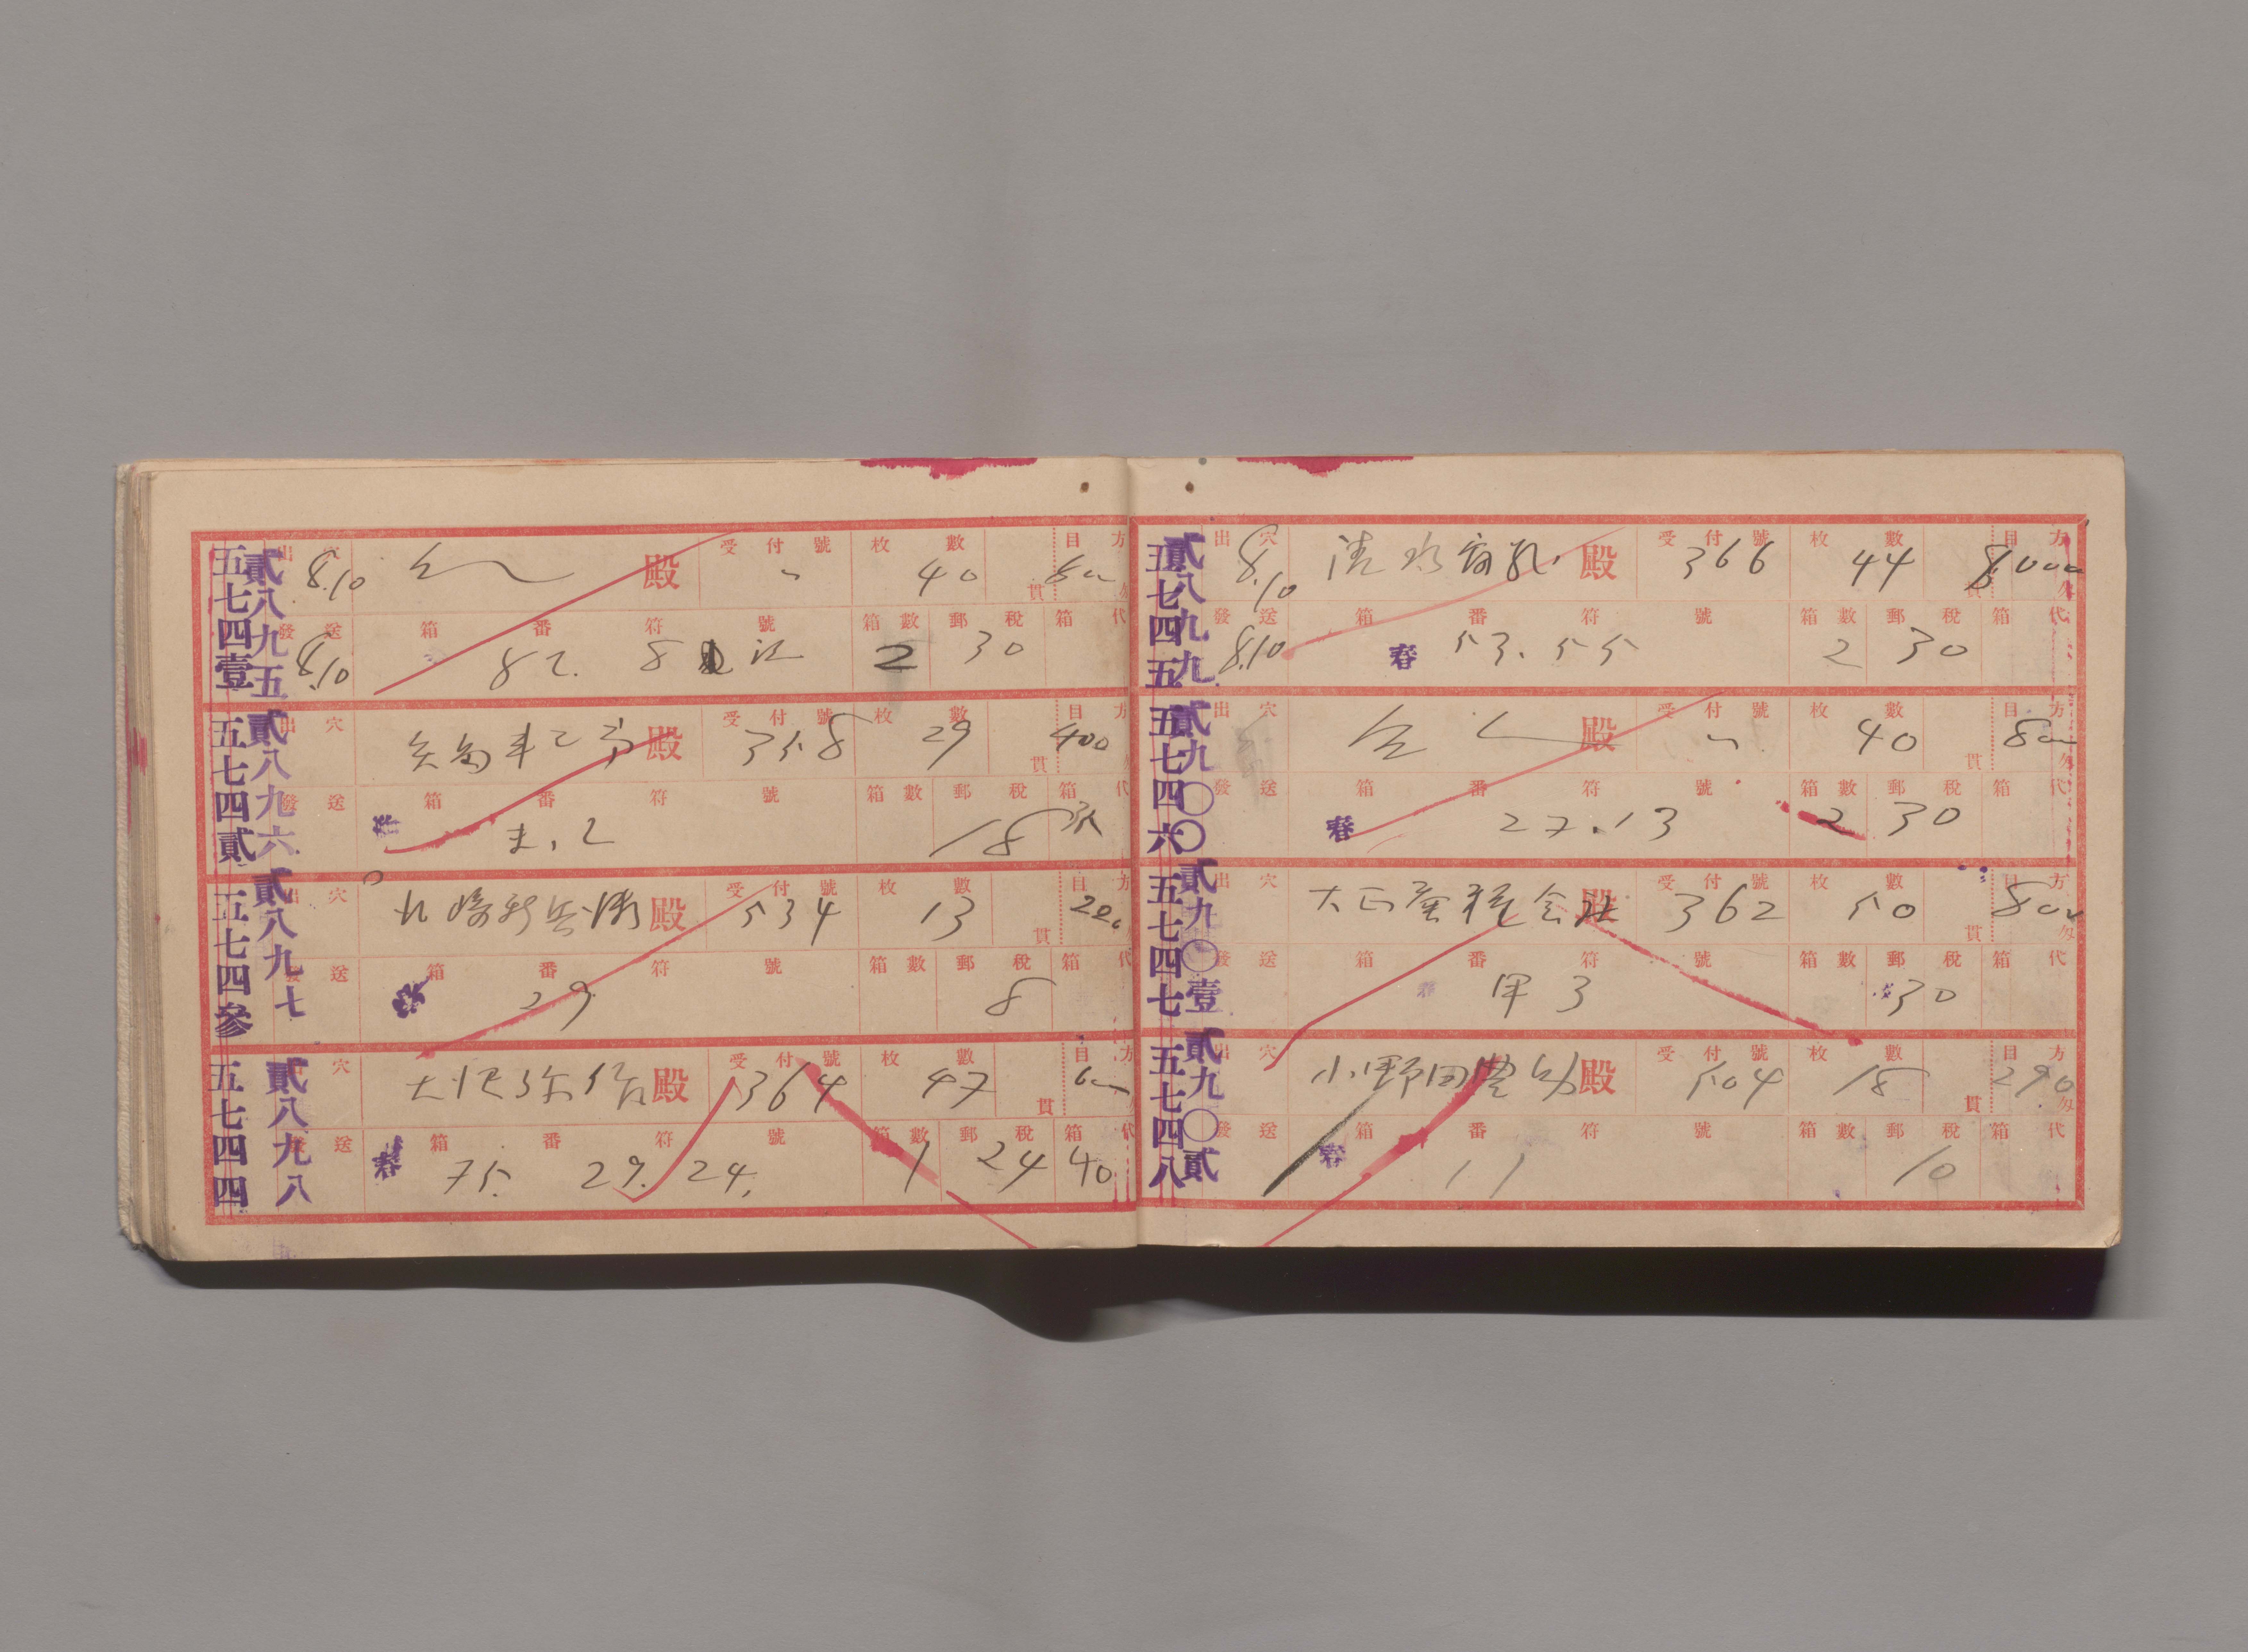 五七四壹 貳八九五
出穴 8.10 仝 殿 受付號 〃 枚數 40 貫 目方 匁
發送 8.10 箱番符號 82. 8 箱數 2 郵稅 30 箱代
五七四貳 貳八九六
出穴 殿 受付號 358 枚數 29 貫 目方 400 匁
發送 箱番符號 春 2 箱數 郵稅 18 箱代
五七四参 貳八九七
出穴 殿 受付號 534 枚數 13 貫 目方 220
發送 箱番符號 春 29 箱數 郵稅 8 箱代
五七四四 貳八九八
出穴 殿 受付號 364 枚數 47 貫 目方
發送 箱番符號 春 75. 29. 24. 箱數 1 郵稅 24 箱代 40
五七四五 貳八九九
出穴 8.10 清水 殿 受付號 366 枚數 44 貫 目方 匁
發送 8.10 箱番符號 春 53. 55 箱數 2 郵稅 30 箱代
五七四六 貳九〇〇
出穴 仝 殿 受付號 〃 枚數 40 貫 目方 匁
發送 箱番符號 春 27.13 箱數 2 郵稅 30 箱代
五七四七 貳九〇壹
出穴 大正蚕種会社 殿 受付號 362 枚數 50 貫 目方 匁
發送 箱番符號 春 甲3 箱數 郵稅 30 箱代
五七四八 貳九〇貳
出穴 小野田豊 殿 受付號 504 枚數 18 貫 目方 290 匁
發送 箱番符號 春 11 箱數 郵稅 10 箱代